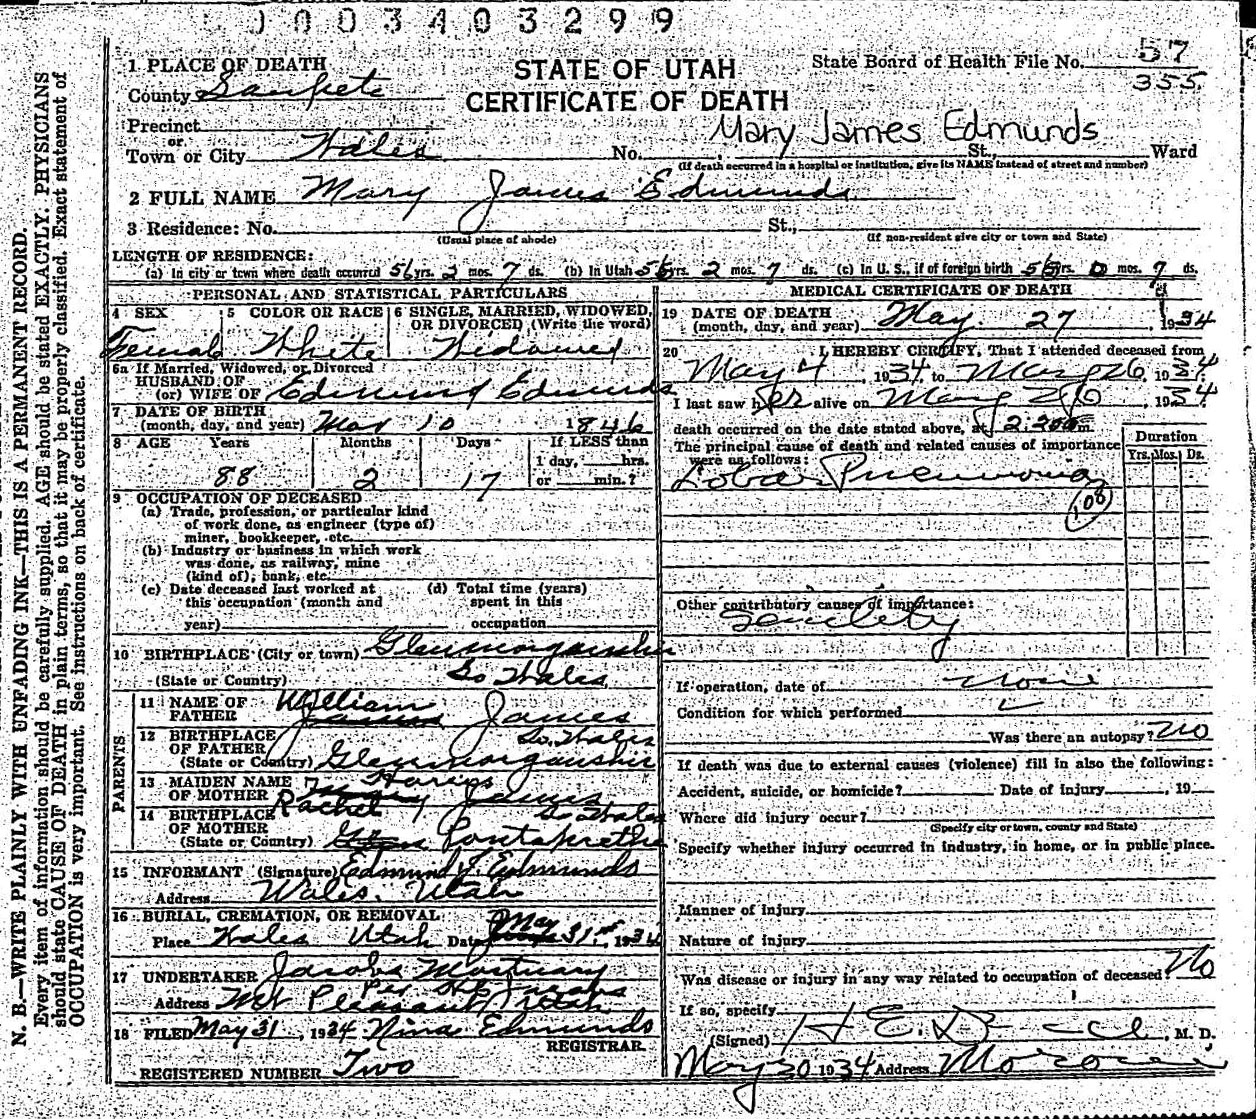 0003403299
STATE OF UTAH
CERTIFICATE OF DEATH
State Board of Health File No. 57
355.
1 PLACE OF DEATH
County Sanpete
Precinct
or
Town or City Wales No. St., Ward
Mary James Edmunds
(If death occurred in a hospital or institution, give its NAME instead of street and number)
2 FULL NAME Mary James Edmunds
3 Residence: No. St.,
(Usual place of abode) (If non-resident give city or town and State)
LENGTH OF RESIDENCE:
(a) In city or town where death occurred 56 yrs. 2 mos. 7 ds. (b) In Utah yrs. 2 mos. 7 ds. (c) In U. S., if of foreign birth yrs. mos. 7 ds.
PERSONAL AND STATISTICAL PARTICULARS
4 SEX 5 COLOR OR RACE 6 SINGLE, MARRIED, WIDOWED, OR DIVORCED (Write the word)
Female White Widowed
6a If Married, Widowed, or Divorced
HUSBAND OF
(or) WIFE OF Edmund Edmunds
7 DATE OF BIRTH
(month, day, and year) Mar 10 1846
8 AGE Years Months Days If LESS than
1 day, hrs.
88 2 17 or min.?
9 OCCUPATION OF DECEASED
(a) Trade, profession, or particular kind
of work done, as engineer (type of)
miner, bookkeeper, etc.
(b) Industry or business in which work
was done, as railway, mine
(kind of), bank, etc.
(c) Date deceased last worked at
this occupation (month and
year)
(d) Total time (years)
spent in this
occupation
10 BIRTHPLACE (City or town) Glenmorganshire
(State or Country) So Wales
PARENTS
11 NAME OF
FATHER William James James
12 BIRTHPLACE
OF FATHER So. Wales
(State or Country) Glenmorganshire
13 MAIDEN NAME
OF MOTHER Rachel James
14 BIRTHPLACE
OF MOTHER So Wales
(State or Country)
15 INFORMANT (Signature) Edmund J. Edmunds
Address Wales, Utah
16 BURIAL, CREMATION, OR REMOVAL
Place Wales Utah Date May 31st 1934
17 UNDERTAKER Jacobs Mortuary
Address Mt Pleasant Utah
18 FILED May 31, 1934 Nina Edmunds
REGISTRAR
REGISTERED NUMBER Two
MEDICAL CERTIFICATE OF DEATH
19 DATE OF DEATH
(month, day, and year) May 27 1934
20 I HEREBY CERTIFY, That I attended deceased from
May 4, 1934, to May 26, 1934
I last saw her alive on May 26, 1934
death occurred on the date stated above, at 2:20 m
The principal cause of death and related causes of importance
were as follows:
Duration
Yrs. Mos. Ds.
Lobar Pneumonia
108
Other contributory causes of importance:
Senility
If operation, date of None
Condition for which performed
Was there an autopsy? No
If death was due to external causes (violence) fill in also the following:
Accident, suicide, or homicide? Date of injury , 19
Where did injury occur?
(Specify city or town, county and State)
Specify whether injury occurred in industry, in home, or in public place.
Manner of injury
Nature of injury
Was disease or injury in any way related to occupation of deceased? No
If so, specify
(Signed) , M. D.
May 30 1934 Address Moroni
N. B.—WRITE PLAINLY WITH UNFADING INK—THIS IS A PERMANENT RECORD.
Every item of information should be carefully supplied. AGE should be stated EXACTLY. PHYSICIANS
should state CAUSE OF DEATH in plain terms, so that it may be properly classified. Exact statement of
OCCUPATION is very important. See instructions on back of certificate.